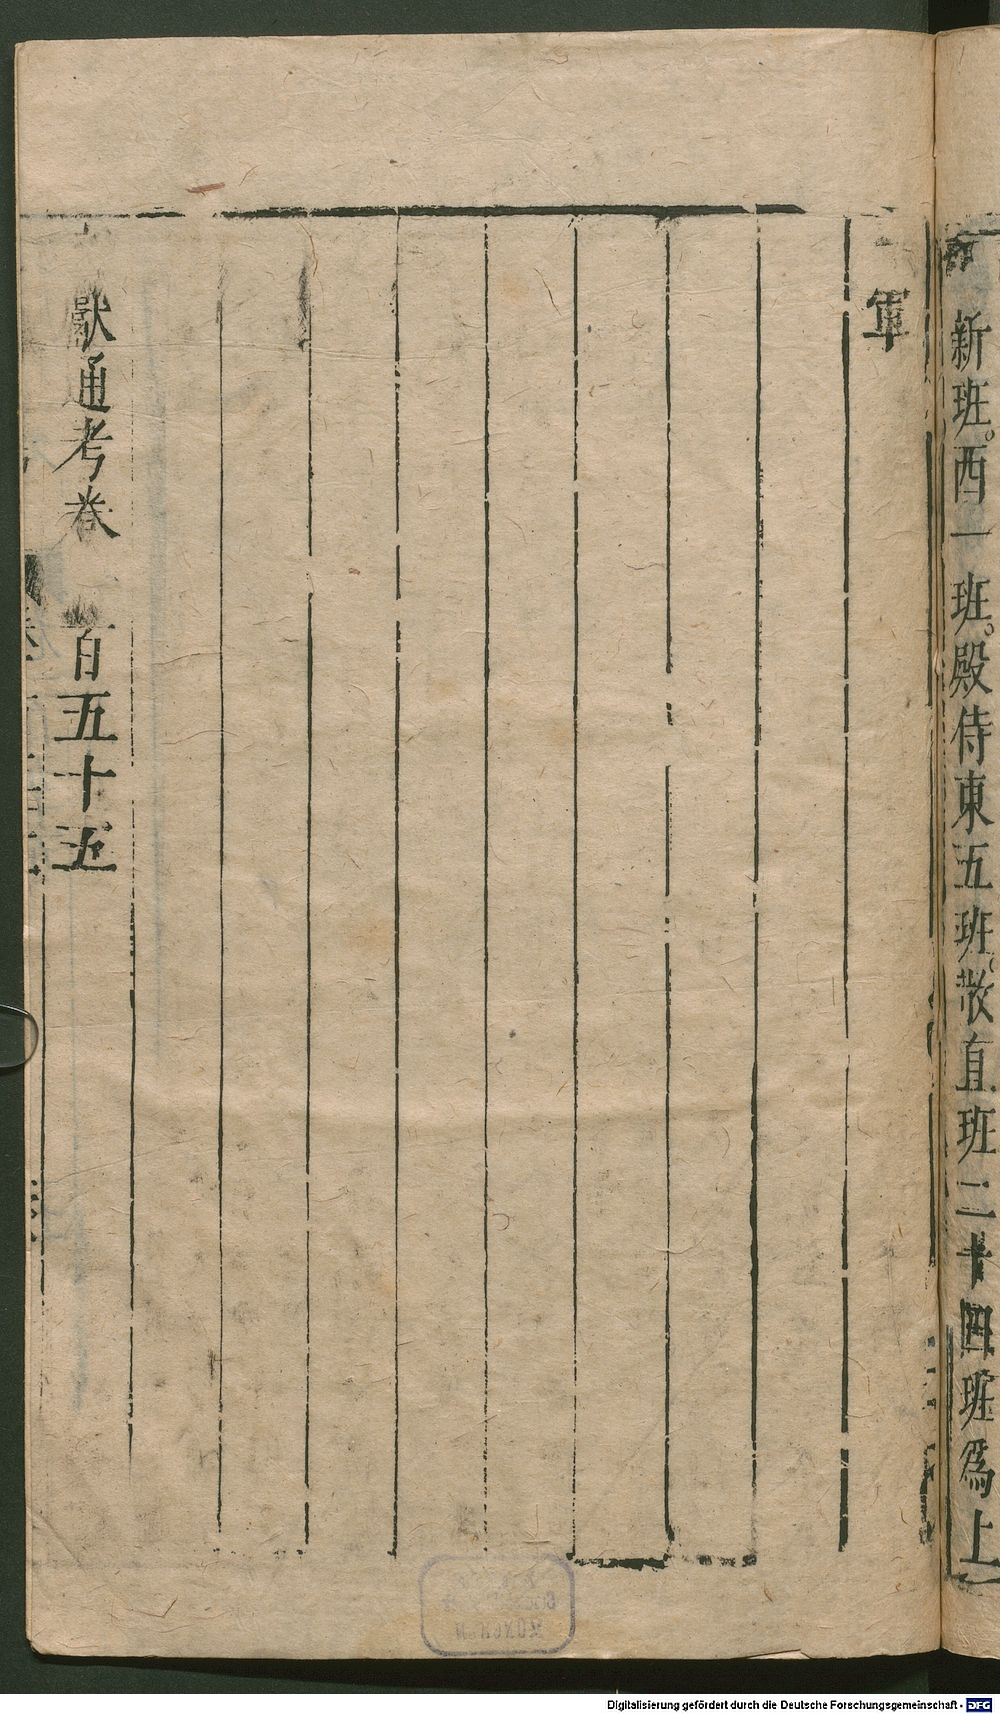 新班。西一班。殿侍東五班。散直班二十四班爲上
軍
獻通考卷一百五十五
Digitalisierung gefördert durch die Deutsche Forschungsgemeinschaft - DFG